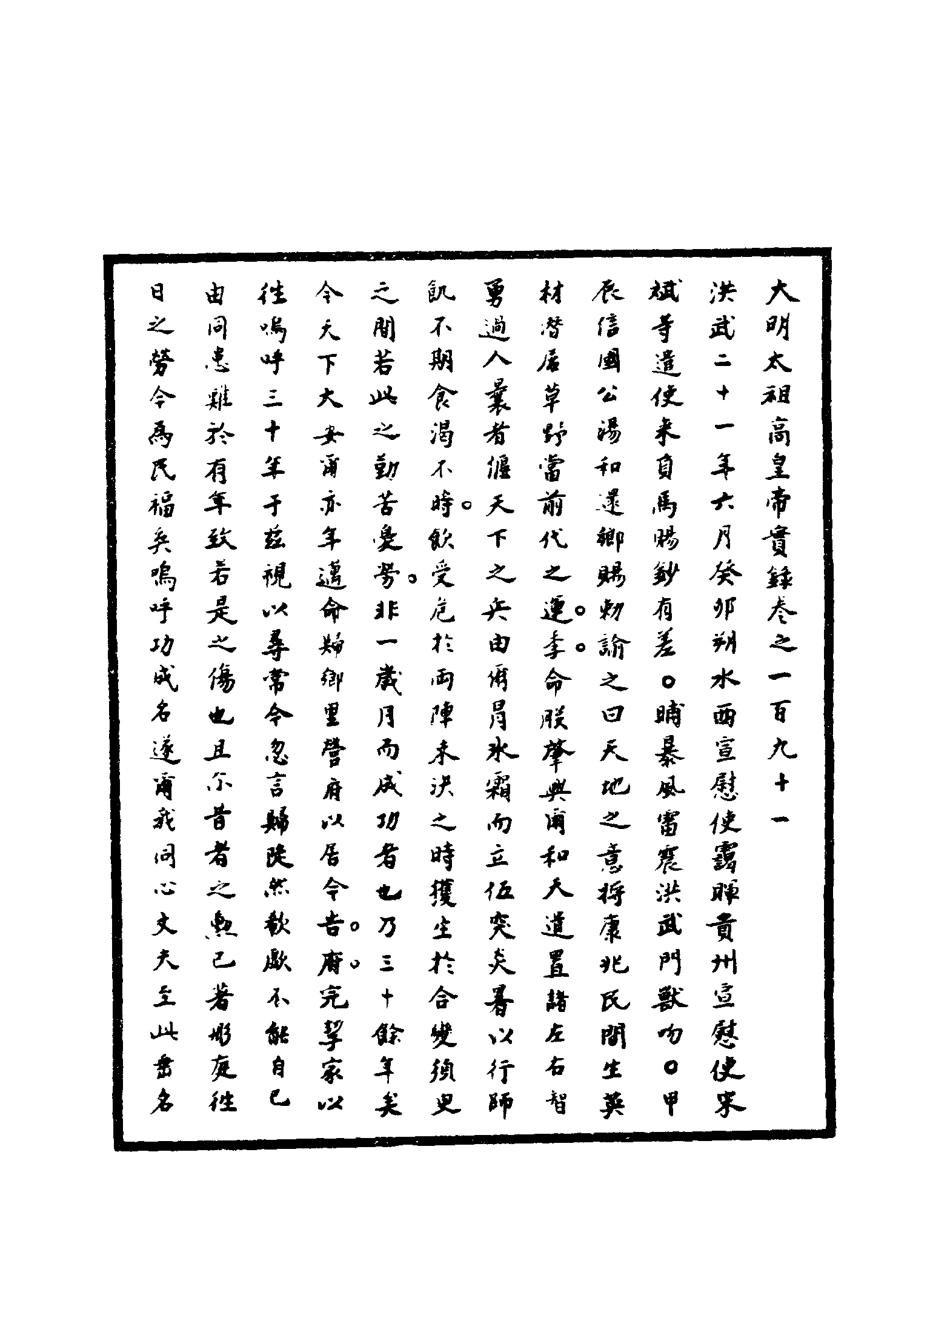 大明太祖高皇帝實錄卷之一百九十一
洪武二十一年六月癸卯朔水西宣慰使靄暉貴州宣慰使宋
斌等遣使來貢馬賜鈔有差○晡暴風雷震洪武門獸吻○甲
辰信國公湯和還鄉賜勑諭之曰天地之意將康兆民間生英
材潛居草野當前代之運。季。命朕肇興爾和天道置諸左右智
勇過人曩者偃天下之兵由爾冒氷霜而立伍突炎暑以行師
飢不期食渴不時。飲受危於兩陣未決之時獲生於合變須臾
之間若此之勤苦憂勞。非一歲月而成功者也乃三十餘年矣
今天下大安爾亦年邁命歸鄉里營府以居今告。府。完挈家以
徃嗚呼三十年于茲視以尋常今忽言歸陡然歔欷不能自已
由同患難於有年致若是之傷也且尔昔者之勲已著彤庭徃
日之勞今爲民福矣嗚呼功成名遂爾我同心丈夫至此垂名